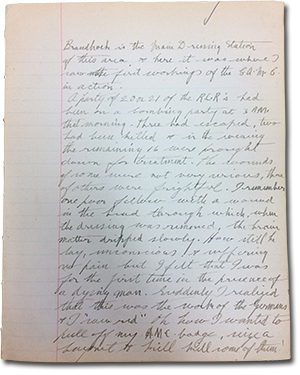 Brandhoek is the Main Dressing Station
of this area & here it was where I
saw the first workings of the C.A.M.C.
in action.
A party of 20 or 21 of the RCR's had
been on a bombing party at 2 AM
that morning. Three had escaped, two
had been killed & in the evening
the remaining 16 were brought
down for treatment. The wounds
of some were not very serious, those
of others were frightful. I remember
one poor fellow with a wound
in the head through which, when
the dressing was removed, the brain
matter dripped slowly. How still he
lay, unconscious & suffering
no pain but I felt that I was
for the first time in the presence of
a dying man. Suddenly I realized
that this was the work of the Germans
& I "saw red". Oh how I wanted to
pull off my A.M.C. badge, seize a
bayonet & kill kill some of them!